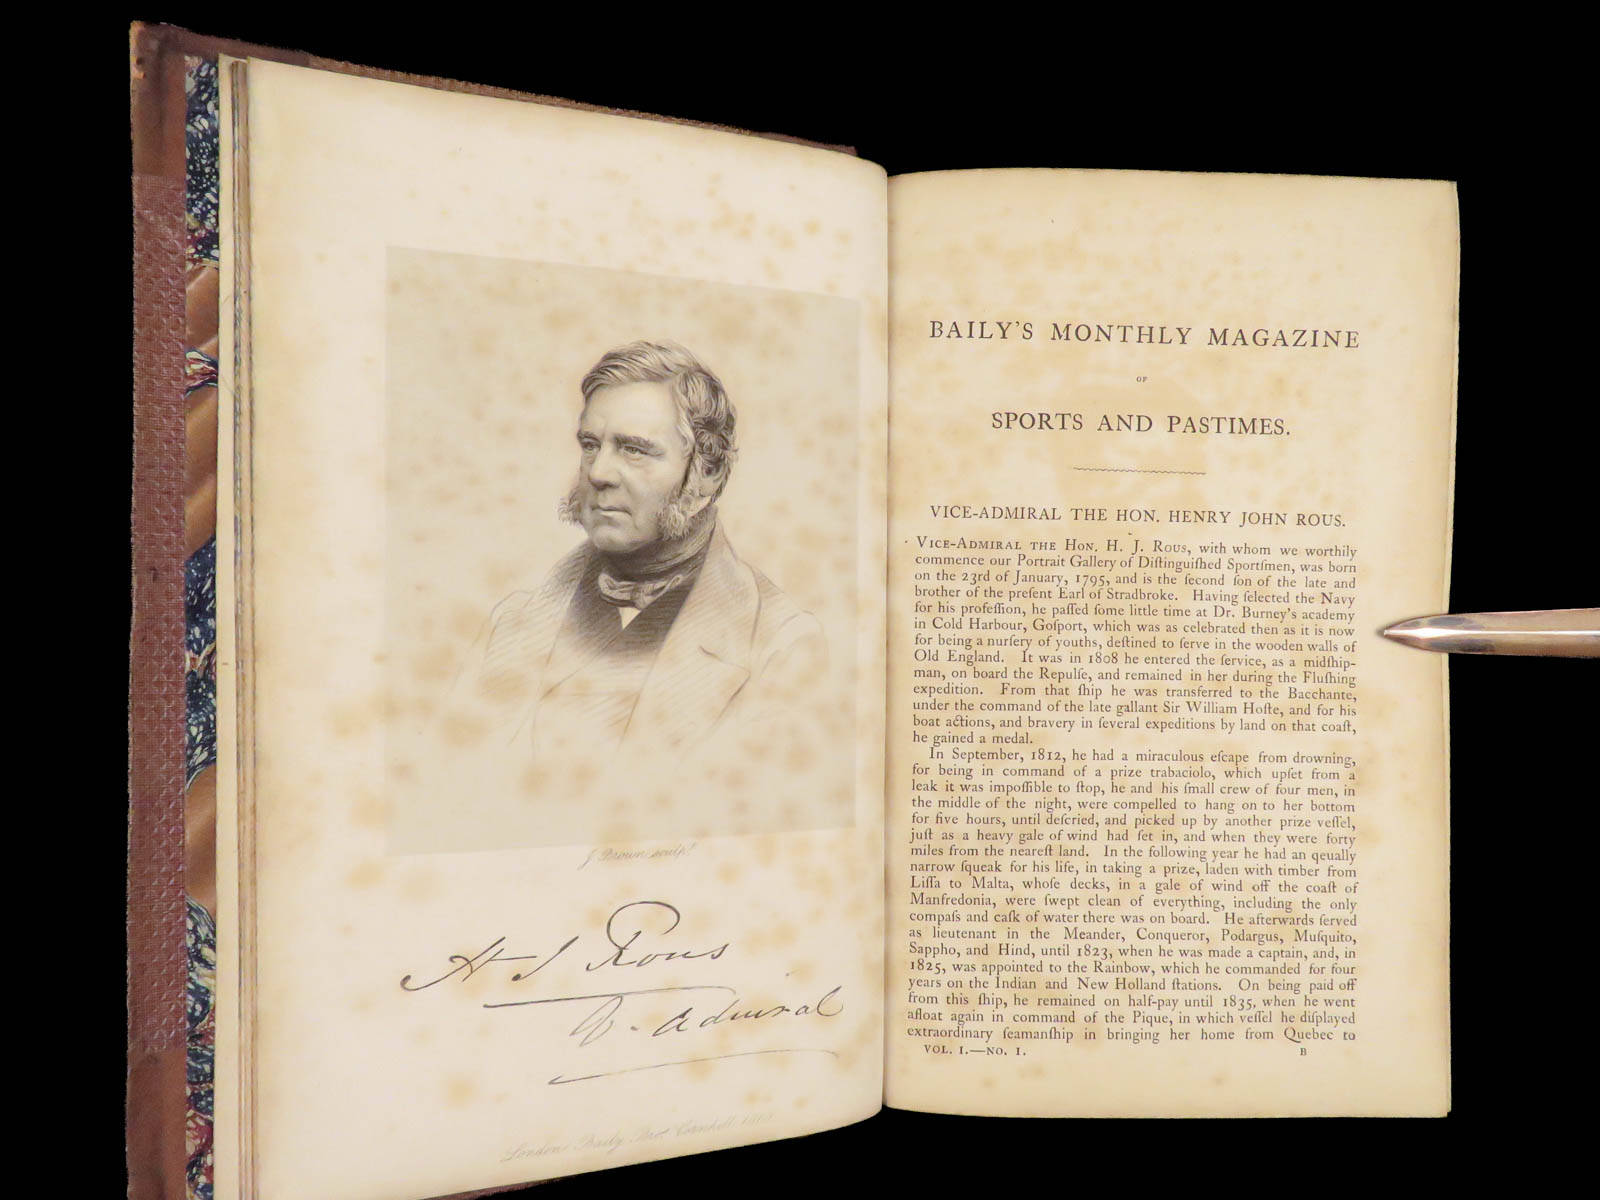 J. Brown sculpt.
H J Rous
V. Admiral
London, Baily Bros. Cornhill, 1860
BAILY'S MONTHLY MAGAZINE
OF
SPORTS AND PASTIMES.
VICE-ADMIRAL THE HON. HENRY JOHN ROUS.
VICE-ADMIRAL THE HON. H. J. ROUS, with whom we worthily
commence our Portrait Gallery of Diſtinguiſhed Sportſmen, was born
on the 23rd of January, 1795, and is the ſecond ſon of the late and
brother of the preſent Earl of Stradbroke. Having ſelected the Navy
for his profeſſion, he paſſed ſome little time at Dr. Burney's academy
in Cold Harbour, Goſport, which was as celebrated then as it is now
for being a nurſery of youths, deſtined to ſerve in the wooden walls of
Old England. It was in 1808 he entered the ſervice, as a midſhip-
man, on board the Repulſe, and remained in her during the Fluſhing
expedition. From that ſhip he was transferred to the Bacchante,
under the command of the late gallant Sir William Hoſte, and for his
boat actions, and bravery in ſeveral expeditions by land on that coaſt,
he gained a medal.
In September, 1812, he had a miraculous eſcape from drowning,
for being in command of a prize trabaciolo, which upſet from a
leak it was impoſſible to ſtop, he and his ſmall crew of four men, in
the middle of the night, were compelled to hang on to her bottom
for five hours, until deſcried, and picked up by another prize veſſel,
juſt as a heavy gale of wind had ſet in, and when they were forty
miles from the neareſt land. In the following year he had an qeually
narrow ſqueak for his life, in taking a prize, laden with timber from
Liſſa to Malta, whoſe decks, in a gale of wind off the coaſt of
Manfredonia, were ſwept clean of everything, including the only
compaſs and caſk of water there was on board. He afterwards ſerved
as lieutenant in the Meander, Conqueror, Podargus, Muſquito,
Sappho, and Hind, until 1823, when he was made a captain, and, in
1825, was appointed to the Rainbow, which he commanded for four
years on the Indian and New Holland ſtations. On being paid off
from this ſhip, he remained on half-pay until 1835, when he went
afloat again in command of the Pique, in which veſſel he diſplayed
extraordinary ſeamanſhip in bringing her home from Quebec to
VOL. I.—NO. I. B